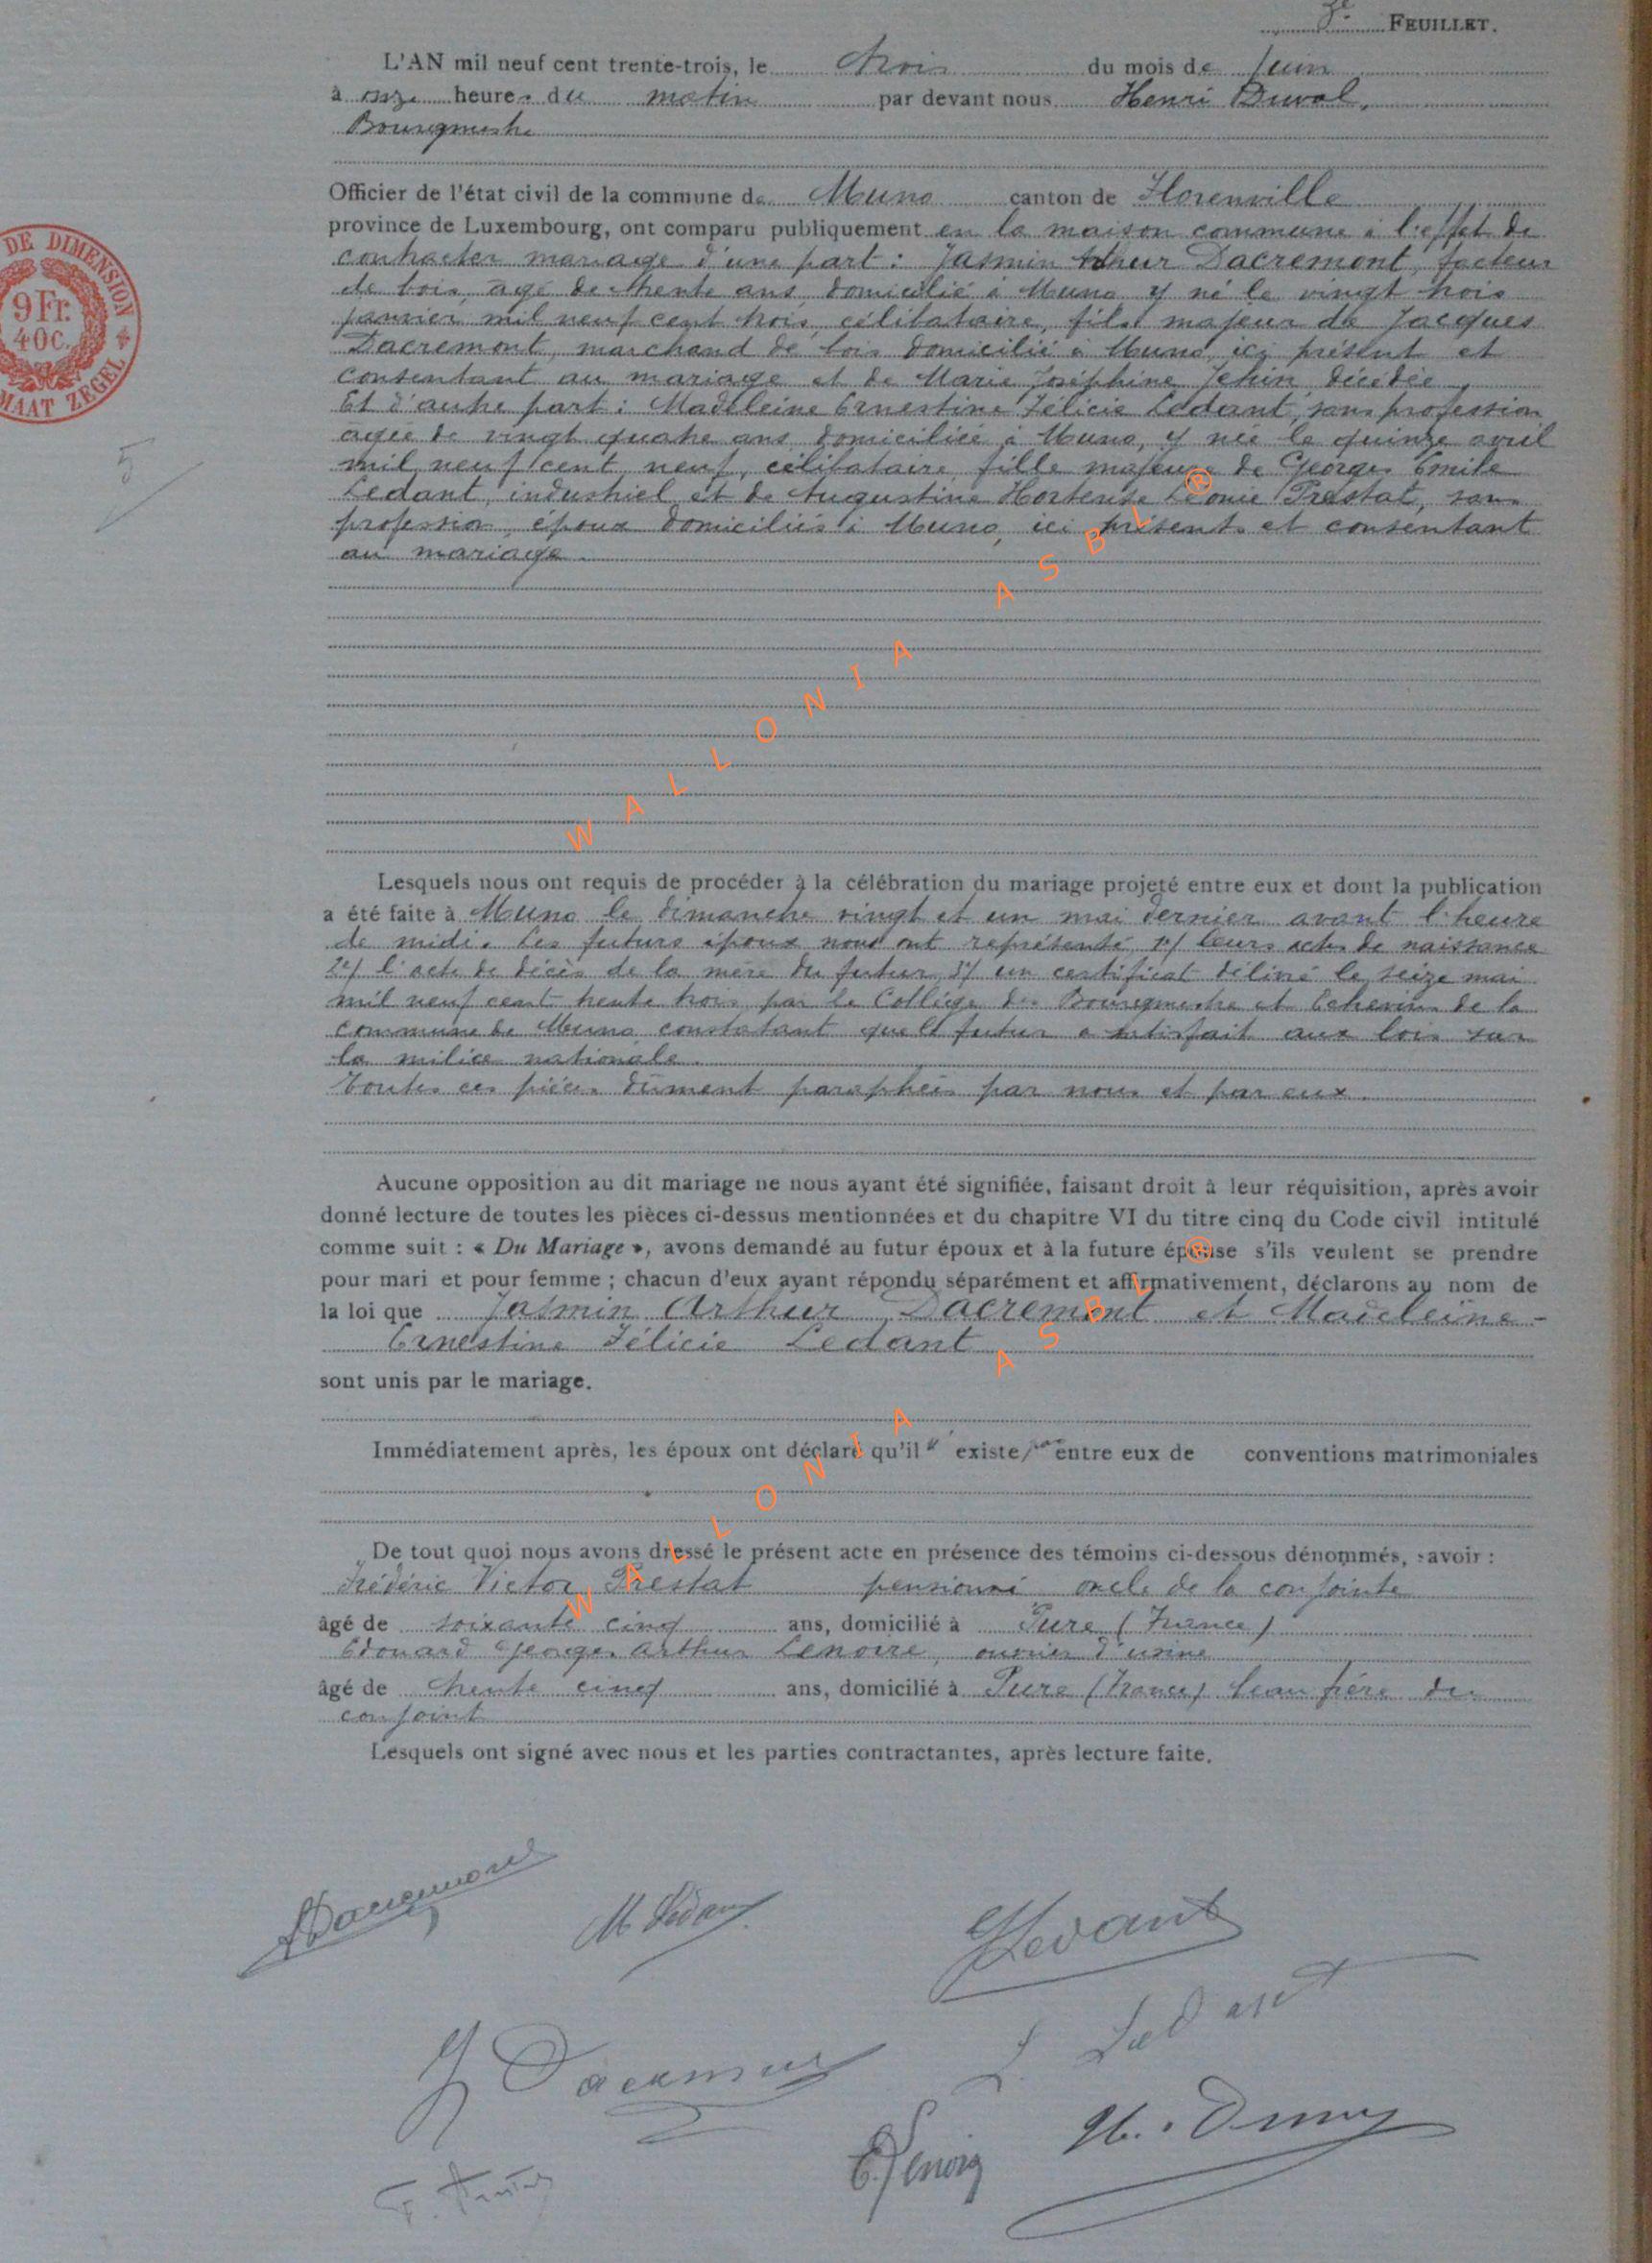 FEUILLET.
L'AN mil neuf cent trente-trois, le trois du mois de Juin
à onze heures du matin par devant nous Henri Duval,
Bourgmestre
Officier de l'état civil de la commune de Muno canton de Florenville
province de Luxembourg, ont comparu publiquement en la maison commune à l'effet de
contracter mariage d'une part : Jasmin Arthur Dacremont, facteur
de bois, âgé de trente ans, domicilié à Muno, y né le vingt trois
janvier mil neuf cent trois, célibataire, fils majeur de Jacques
Dacremont, marchand de bois domicilié à Muno, ici présent et
consentant au mariage et de Marie Joséphine Jehin décédée,
Et d'autre part : Madeleine Ernestine Félicie Ledant, sans profession
âgée de vingt quatre ans, domiciliée à Muno, y née le quinze avril
mil neuf cent neuf, célibataire, fille majeure de Georges Emile
Ledant, industriel et de Augustine Hortense Léonie Prestat, sans
profession, époux domiciliés à Muno, ici présents et consentant
au mariage.
WALLONIA ASBL ®
Lesquels nous ont requis de procéder à la célébration du mariage projeté entre eux et dont la publication
a été faite à Muno le dimanche vingt et un mai dernier avant l'heure
de midi. Les futurs époux nous ont représenté, 1°/ leurs actes de naissance
2°/ l'acte de décès de la mère du futur, 3°/ un certificat délivré le seize mai
mil neuf cent trente trois par le Collège des Bourgmestre et Echevins de la
commune de Muno constatant que le futur a satisfait aux lois sur
la milice nationale.
Toutes ces pièces dûment paraphées par nous et par eux.
Aucune opposition au dit mariage ne nous ayant été signifiée, faisant droit à leur réquisition, après avoir
donné lecture de toutes les pièces ci-dessus mentionnées et du chapitre VI du titre cinq du Code civil intitulé
comme suit : « Du Mariage », avons demandé au futur époux et à la future épouse s'ils veulent se prendre
pour mari et pour femme ; chacun d'eux ayant répondu séparément et affirmativement, déclarons au nom de
la loi que Jasmin Arthur Dacremont et Madeleine-
Ernestine Félicie Ledant
sont unis par le mariage.
Immédiatement après, les époux ont déclaré qu'il n' existe pas entre eux de conventions matrimoniales
De tout quoi nous avons dressé le présent acte en présence des témoins ci-dessous dénommés, savoir :
Frédéric Victor Prestat pensionné oncle de la conjointe
âgé de soixante cinq ans, domicilié à Pure (France)
Edouard Georges Arthur Lenoire, ouvrier d'usine
âgé de trente cinq ans, domicilié à Pure (France) beau frère du
conjoint
Lesquels ont signé avec nous et les parties contractantes, après lecture faite.
WALLONIA ASBL ®
DE DIMENSION
9 Fr.
40 C.
MAAT ZEGEL
5
Dacremont
M. Ledant
Ledant
J Dacremont
L Ledant
E. Lenoire
H. Duval